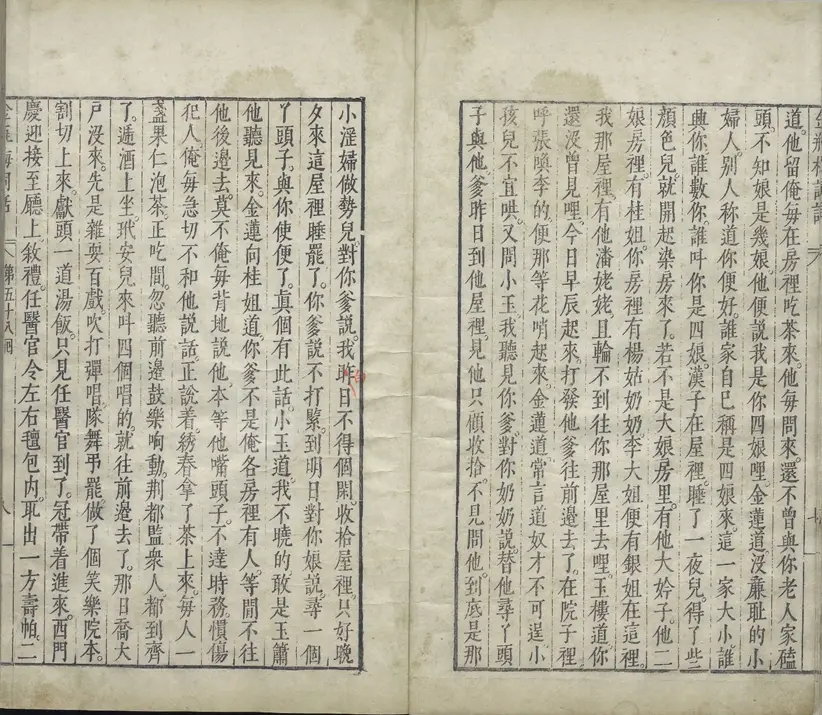 道。他留俺每在房裡吃茶來。他每問來。還不曾與你老人家磕
頭。不知娘是幾娘。他便說我是你四娘哩。金蓮道。沒廉耻的小
婦人。別人称道你便好。誰家自巳稱是四娘來。這一家大小。誰
典你。誰數你。誰叫你是四娘。漢子在屋裡。睡了一夜兒。得了些
顏色兒。就開起染房來了。若不是大娘房里。有他大妗子。他二
娘房裡。有桂姐。你房裡有楊姑奶奶。李大姐便有銀姐在這裡。
我那屋裡。有他潘姥姥。且輪不到往你那屋里去哩。玉樓道。你
還沒曾見哩。今日早辰起來。打發他爹往前邊去了。在院子裡
呼張喚李的。便那等花哨起來。金蓮道。常言道奴才不可逞。小
孩兒不宜哄。又問小玉。我聽見你爹對你奶奶說。替他尋丫頭
子與他。爹昨日到他屋裡。見他只顧收拾。不見問他。到底是那
小淫婦做勢兒。對你爹說。我昨日不得個閑。收拾屋裡。只好晚
夕來這屋裡睡罷了。你爹說不打緊。到明日對你娘說。尋一個
丫頭子。與你使便了。真個有此話。小玉道。我不曉的。敢是玉簫
他聽見來。金蓮向桂姐道。你爹不是俺各房裡有人。等閒不往
他後邊去。莫不俺每背地說他。本等他嘴頭子。不達時務。慣傷
犯人。俺每急切不和他說話。正說着。綉春拿了茶上來。每人一
盞果仁泡茶。正吃間。忽聽前邊鼓樂响動。荆都監衆人。都到齊
了。遞酒上坐。玳安兒來叫四個唱的。就往前邊去了。那日喬大
戶沒來。先是雜耍百戲。吹打彈唱。隊舞弔罷。做了個笑樂院本。
割切上來。獻頭一道湯飯。只見任醫官到了。冠帶着進來。西門
慶迎接至廳上。敘禮。任醫官令左右氊包内。取出一方壽帕。二
第五十八囘
八